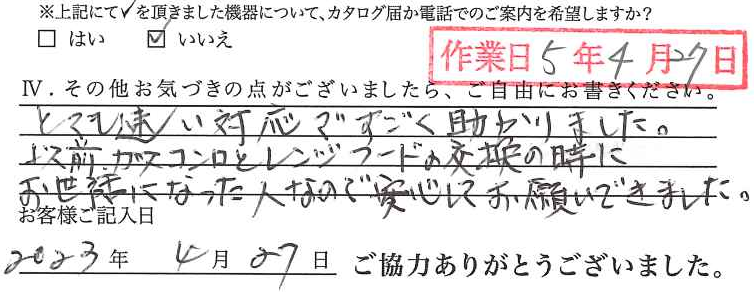 ※上記にて✓を頂きました機器について、カタログ届か電話でのご案内を希望しますか?
□ はい ☑ いいえ
作業日 5年4月27日
Ⅳ.その他お気づきの点がございましたら、ご自由にお書きください。
とても速い対応ですごく助かりました。
以前ガスコンロとレンジフードの交換の時に
お世話になった人なので安心してお願いできました。
お客様ご記入日
2023年 4月27日 ご協力ありがとうございました。